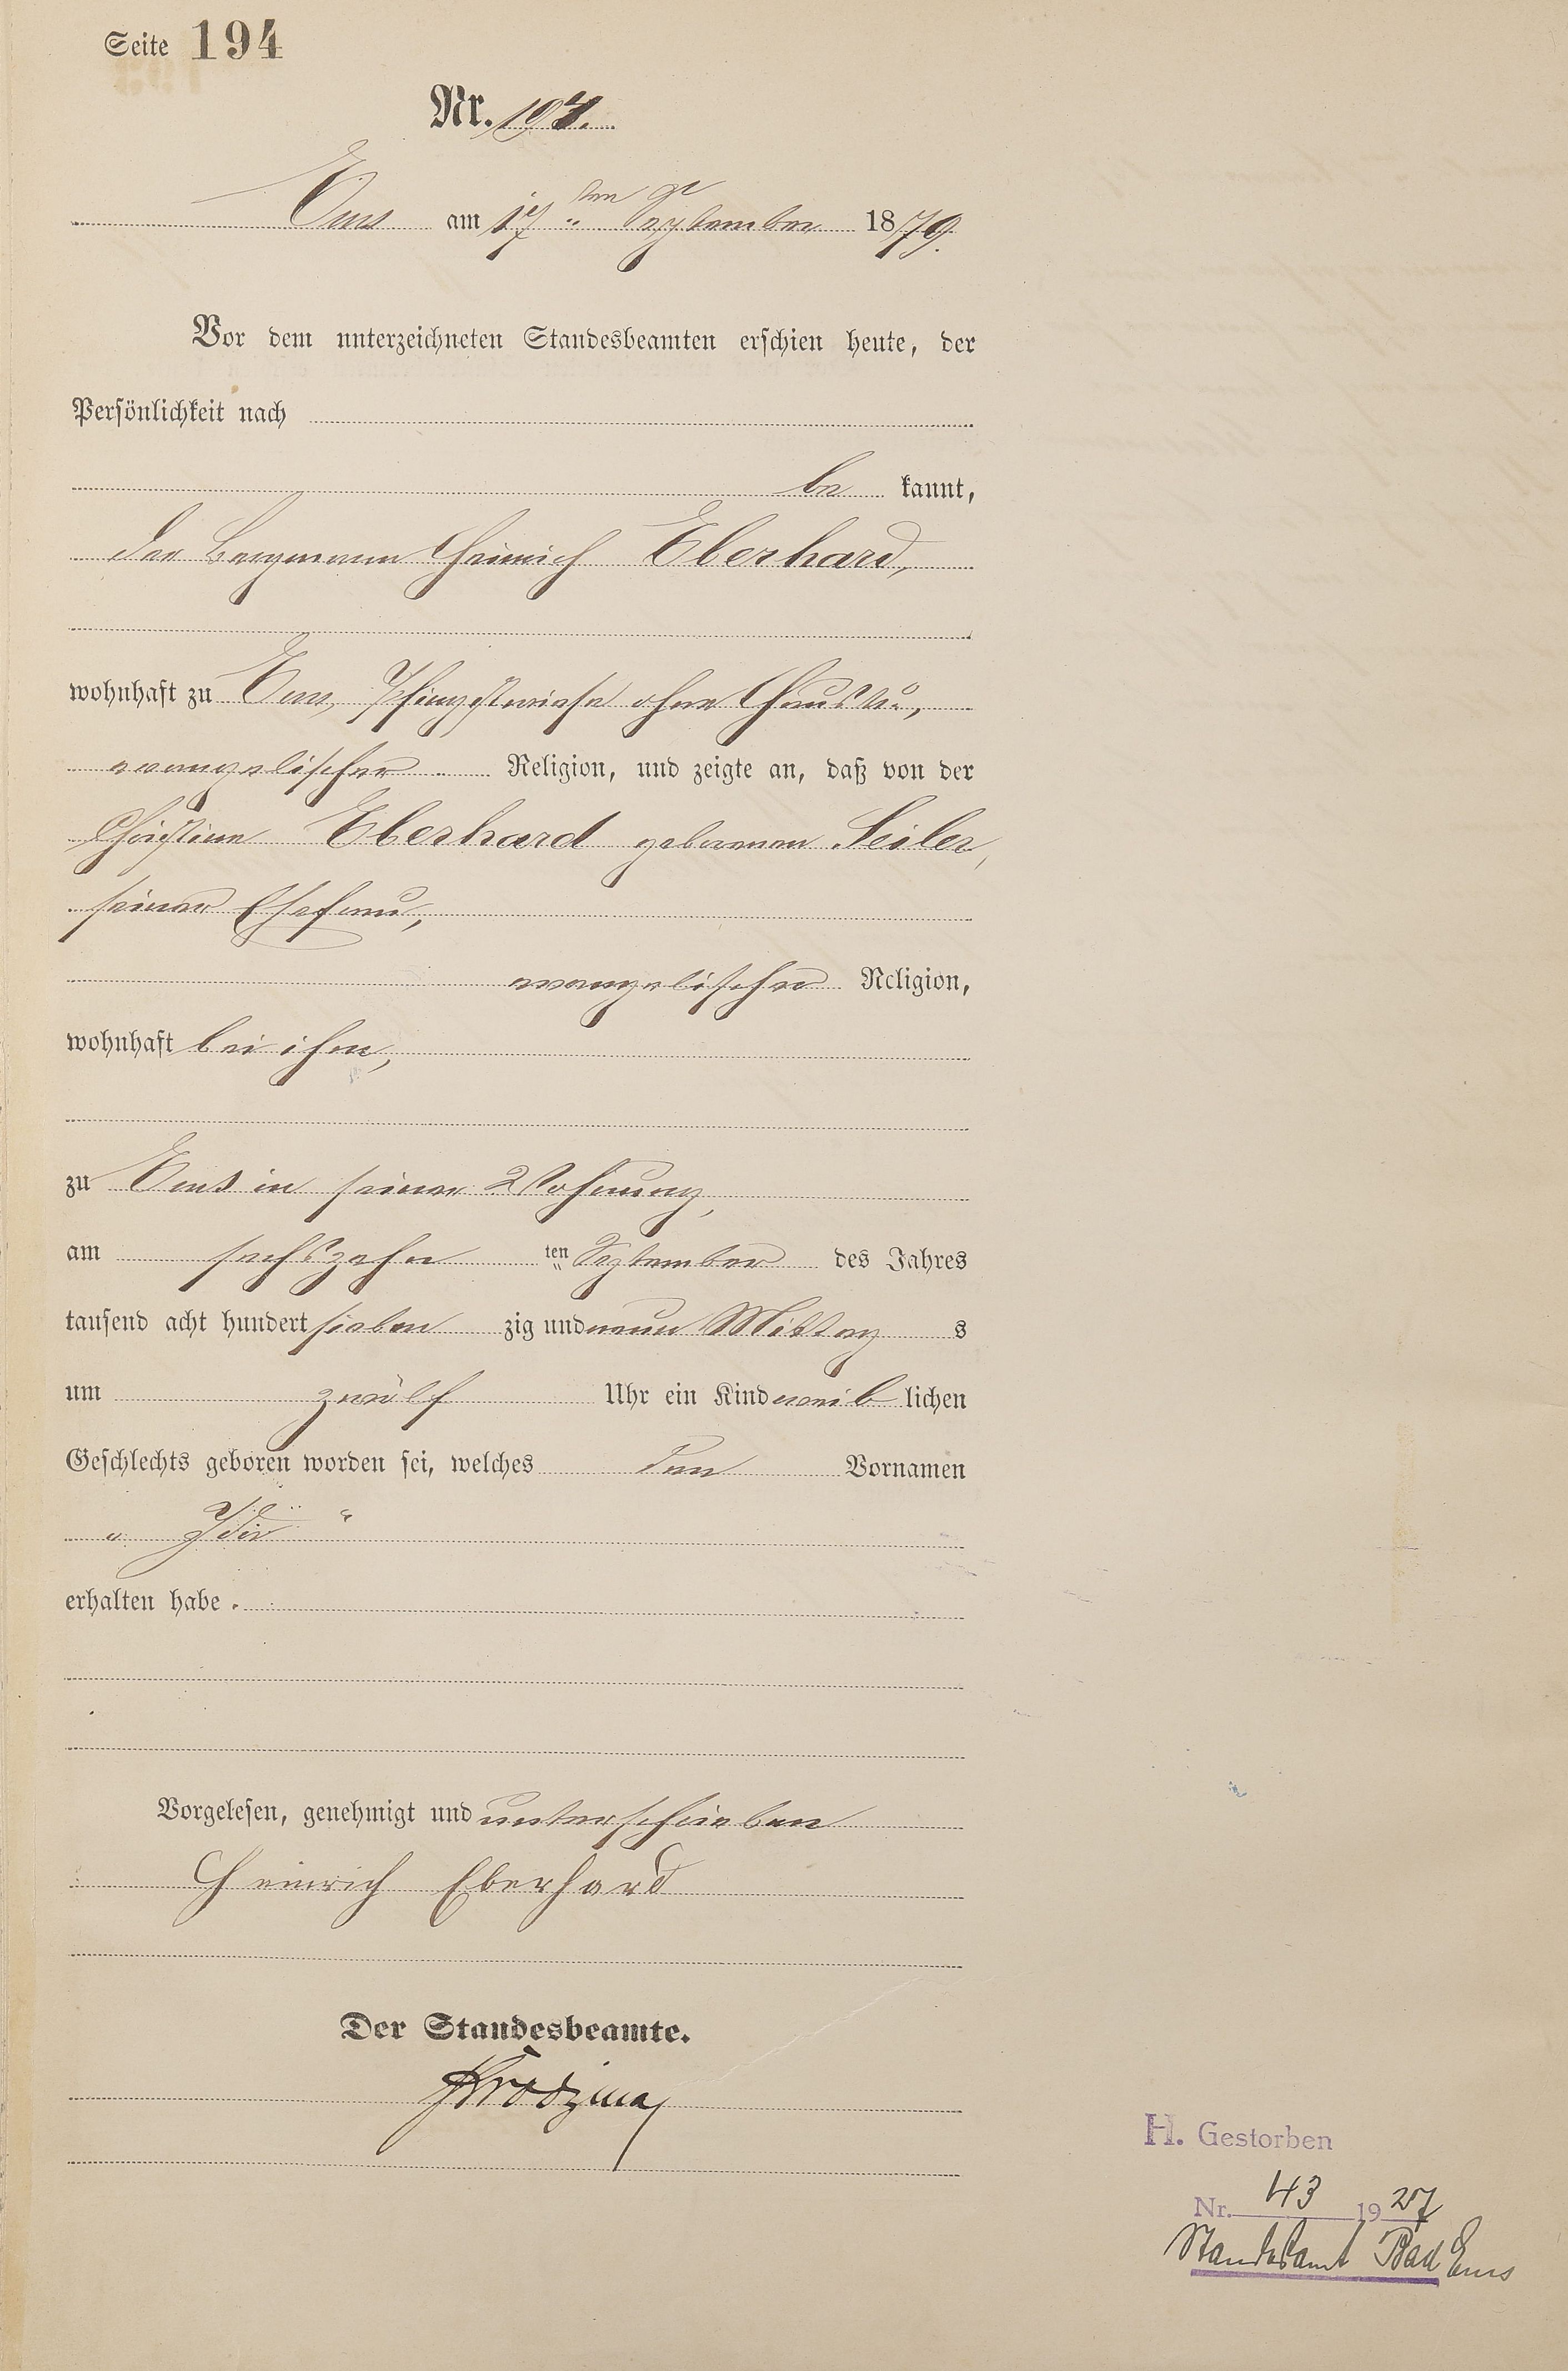 Seite 194
Nr. 194.
Ems am 17ten September 1879.
Vor dem unterzeichneten Standesbeamten erschien heute, der
Persönlichkeit nach
be kannt,
der Bergmann Heinrich Eberhard,
wohnhaft zu Ems, Pfingstwiese ohne Haus No,
evangelischer Religion, und zeigte an, daß von der
Christine Eberhard geborenen Seiler,
seiner Ehefrau,
evangelischer Religion,
wohnhaft bei ihm,
zu Ems in seiner Wohnung,
am sechszehn ten September des Jahres
tausend acht hundert sieben zig und neun Mittag s
um zwölf Uhr ein Kind weib lichen
Geschlechts geboren worden sei, welches den Vornamen
erhalten habe.
Vorgelesen, genehmigt und unterschrieben
Heinrich Eberhard
Der Standesbeamte.
H. Gestorben
Nr. 43 1927
Standesamt Bad Ems